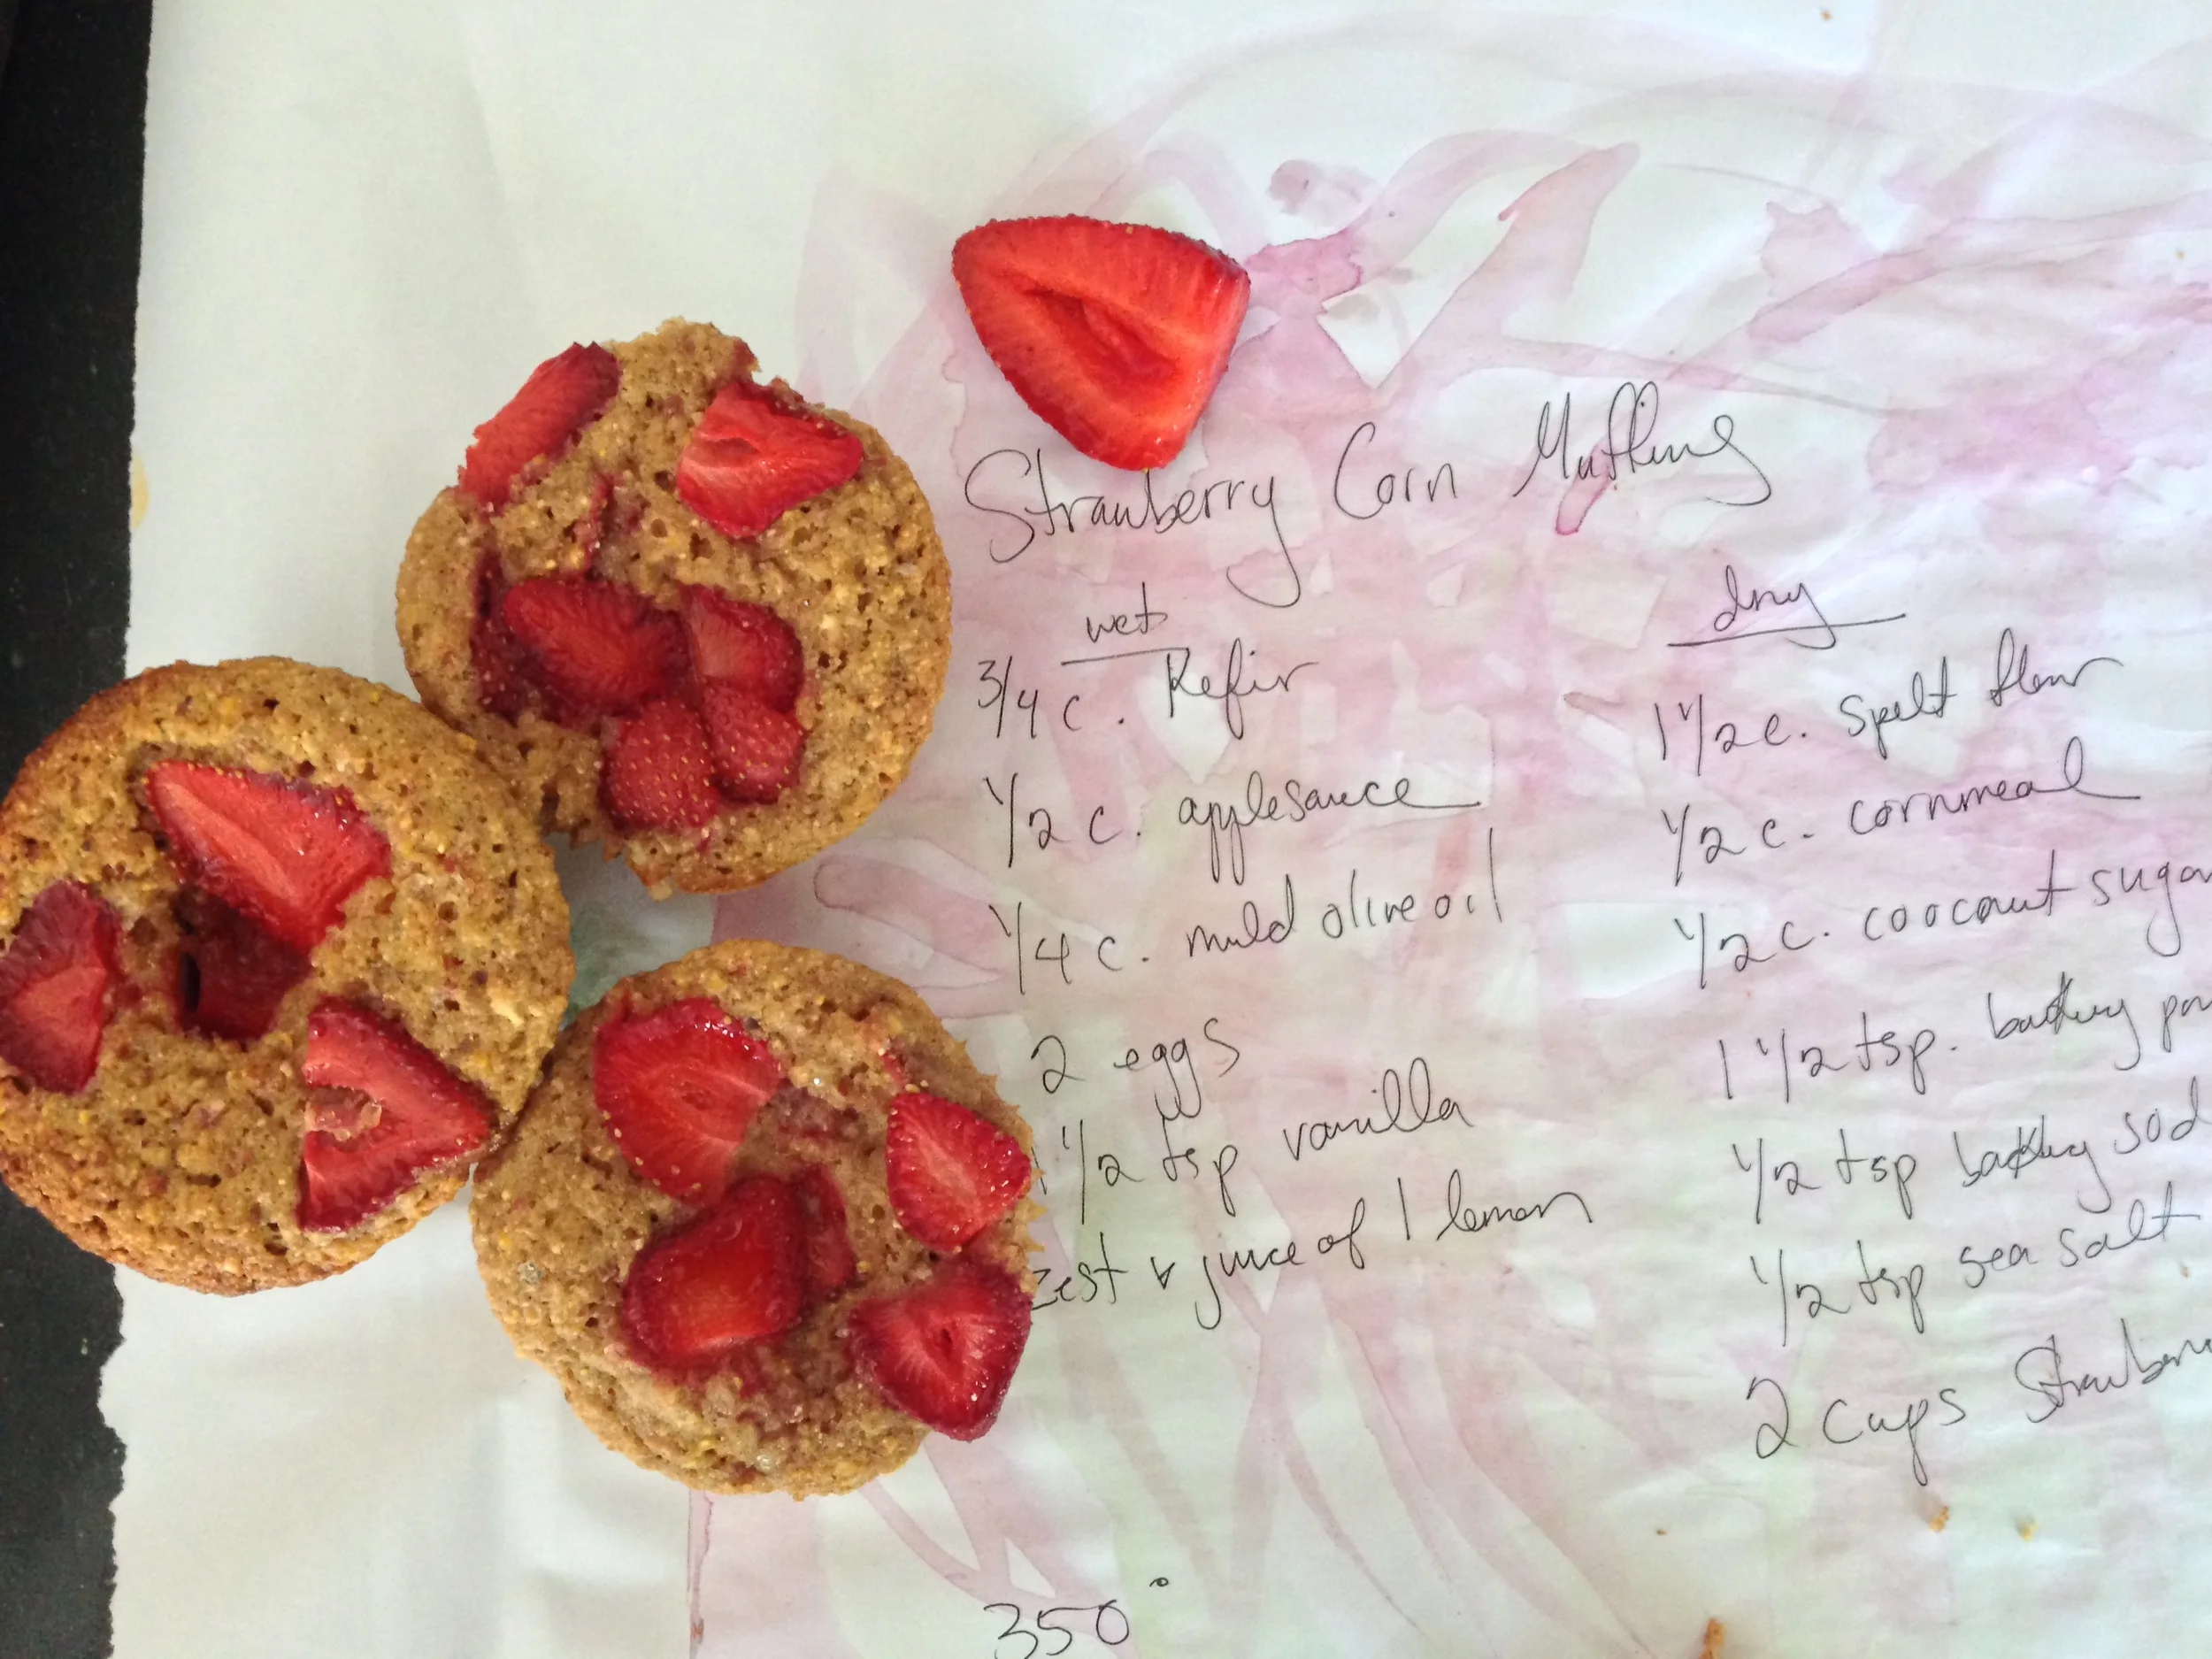 Strawberry Corn Muffins
wet
3/4 c. Kefir
1/2 c. applesauce
1/4 c. mild olive oil
2 eggs
1 1/2 tsp vanilla
zest & juice of 1 lemon
350°
dry
1 1/2 c. spelt flour
1/2 c. cornmeal
1/2 c. coocount sugar
1 1/2 tsp. baking pow
1/2 tsp baking sod
1/2 tsp sea salt
2 cups Strawberri